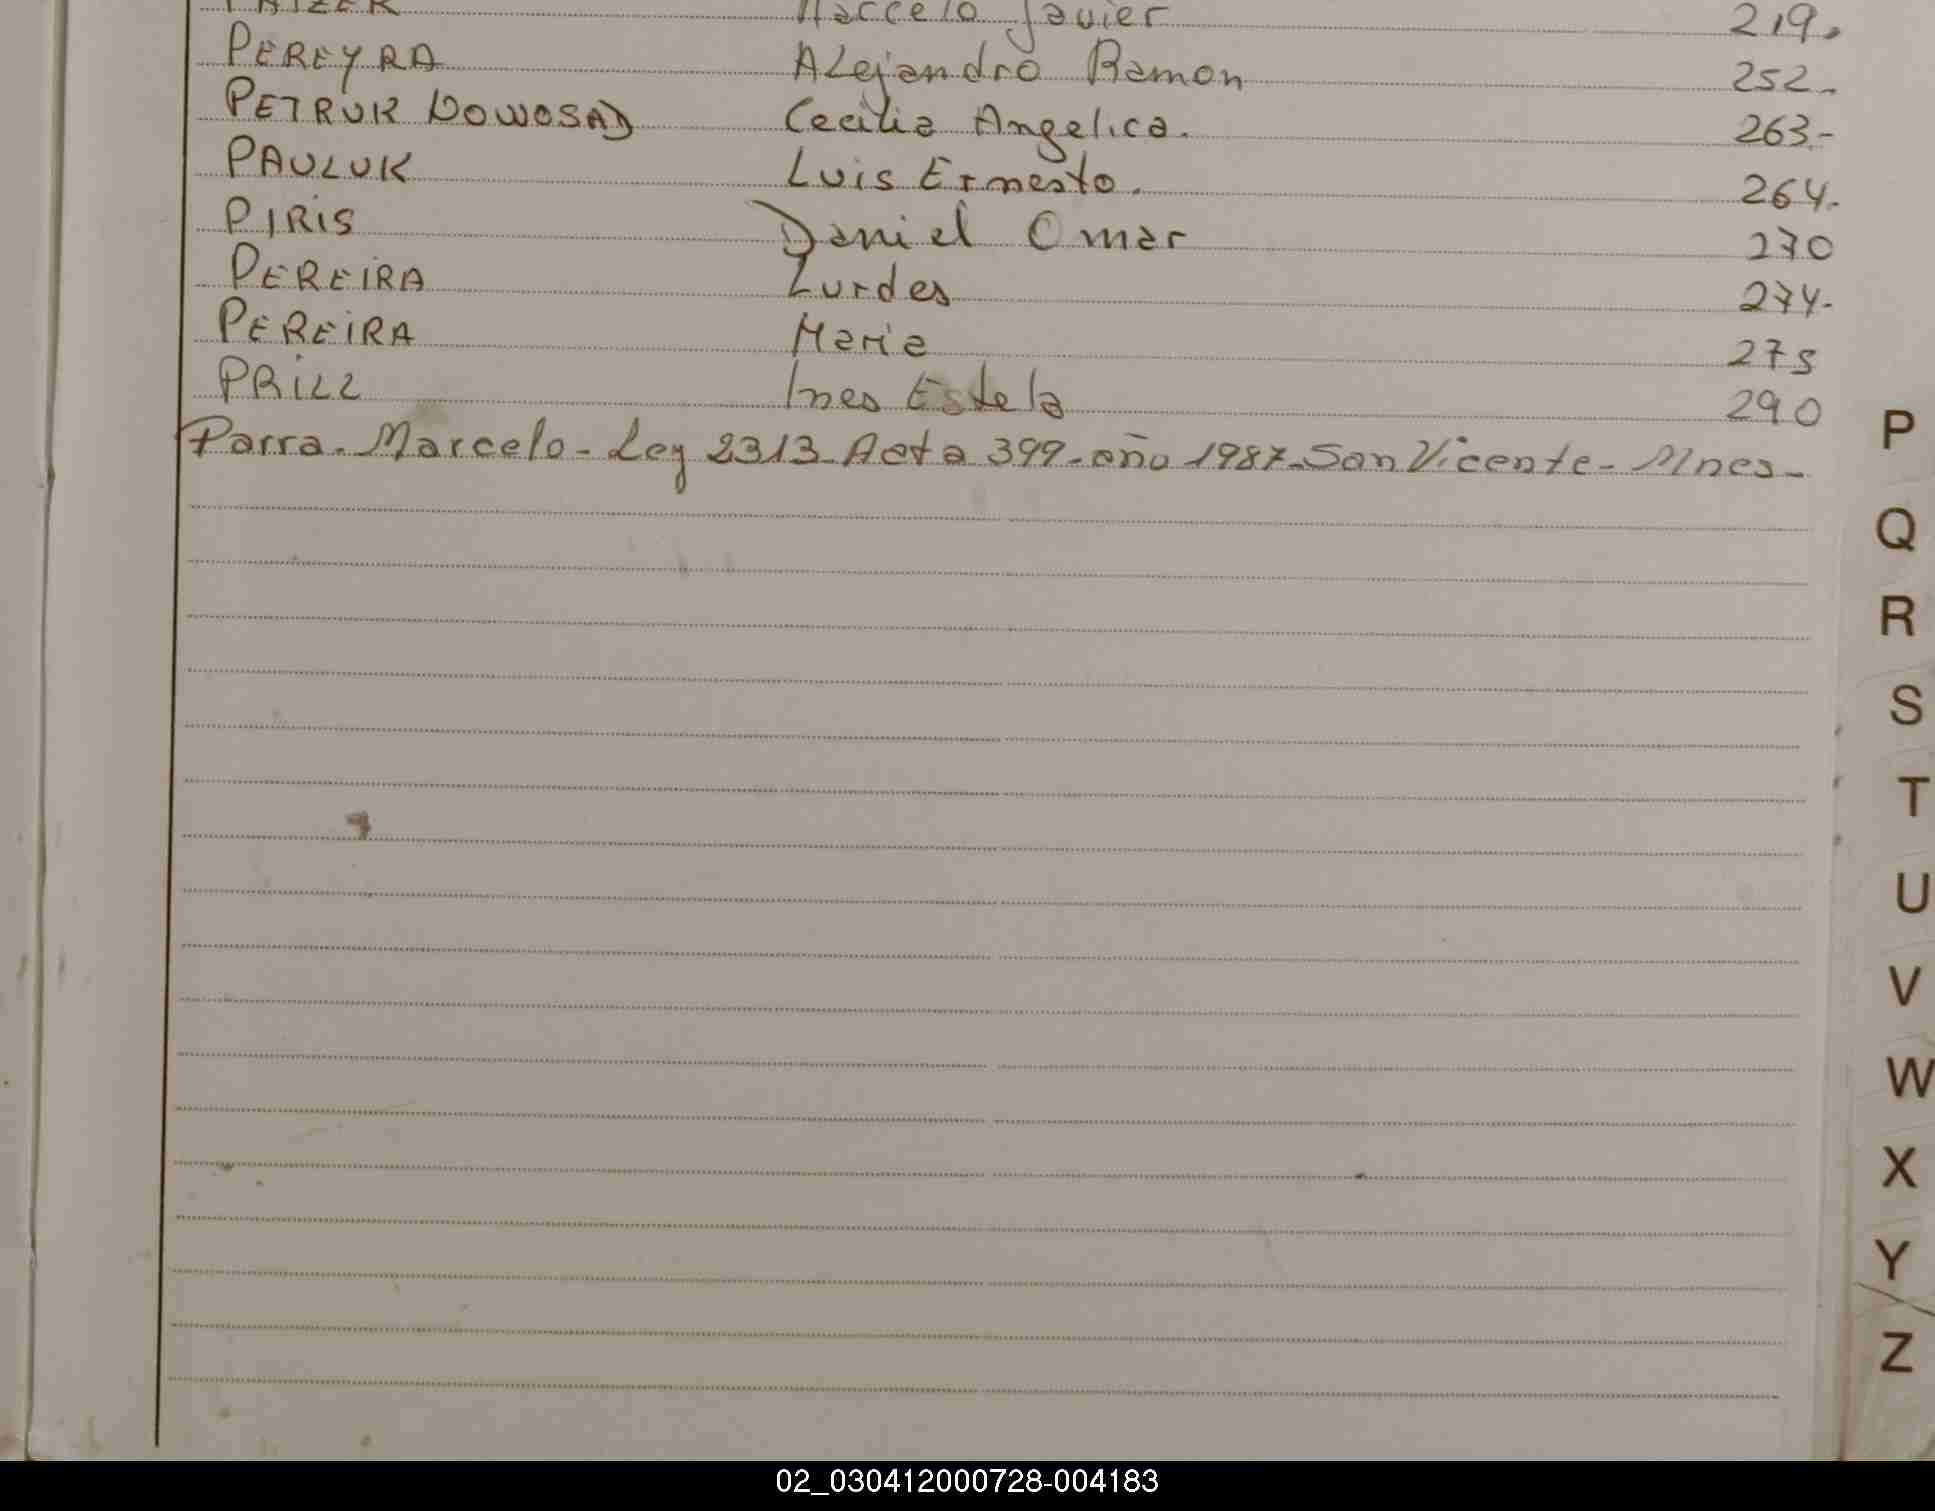 Marcelo Javier 219.
PEREYRA ALejandro Ramon 252.
PETRUK DOWOSAD Cecilia Angelica. 263-
PAULUK Luis Ernesto. 264.
PIRIS Daniel Omar 270
PEREIRA Lurdes 274-
PEREIRA Maria 275
PRILL Ines Estela 290
Parra. Marcelo - Ley 2313 - Acta 399 - año 1987 - San Vicente - Mnes -
P
Q
R
S
T
U
V
W
X
Y
Z
02_030412000728-004183